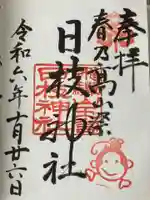 奉拝
春乃高山祭
日枝神社
令和六年十月廿六日